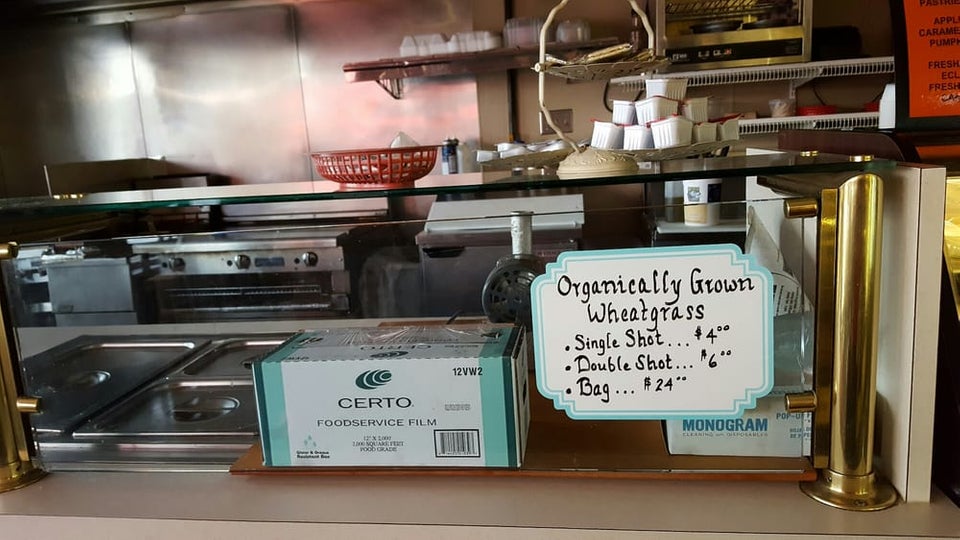 PASTRIE
APPL
CARAME
PUMPK
FRESH
ECL
FRESH
Organically Grown
Wheatgrass
• Single Shot... $4⁰⁰
• Double Shot... $6⁰⁰
• Bag... $24⁰⁰
12VW2
CERTO
FOODSERVICE FILM
12" X 2,000'
2,000 SQUARE FEET
FOOD GRADE
Resistant Box
POP-UP
MONOGRAM
CLEANING DISPOSABLES